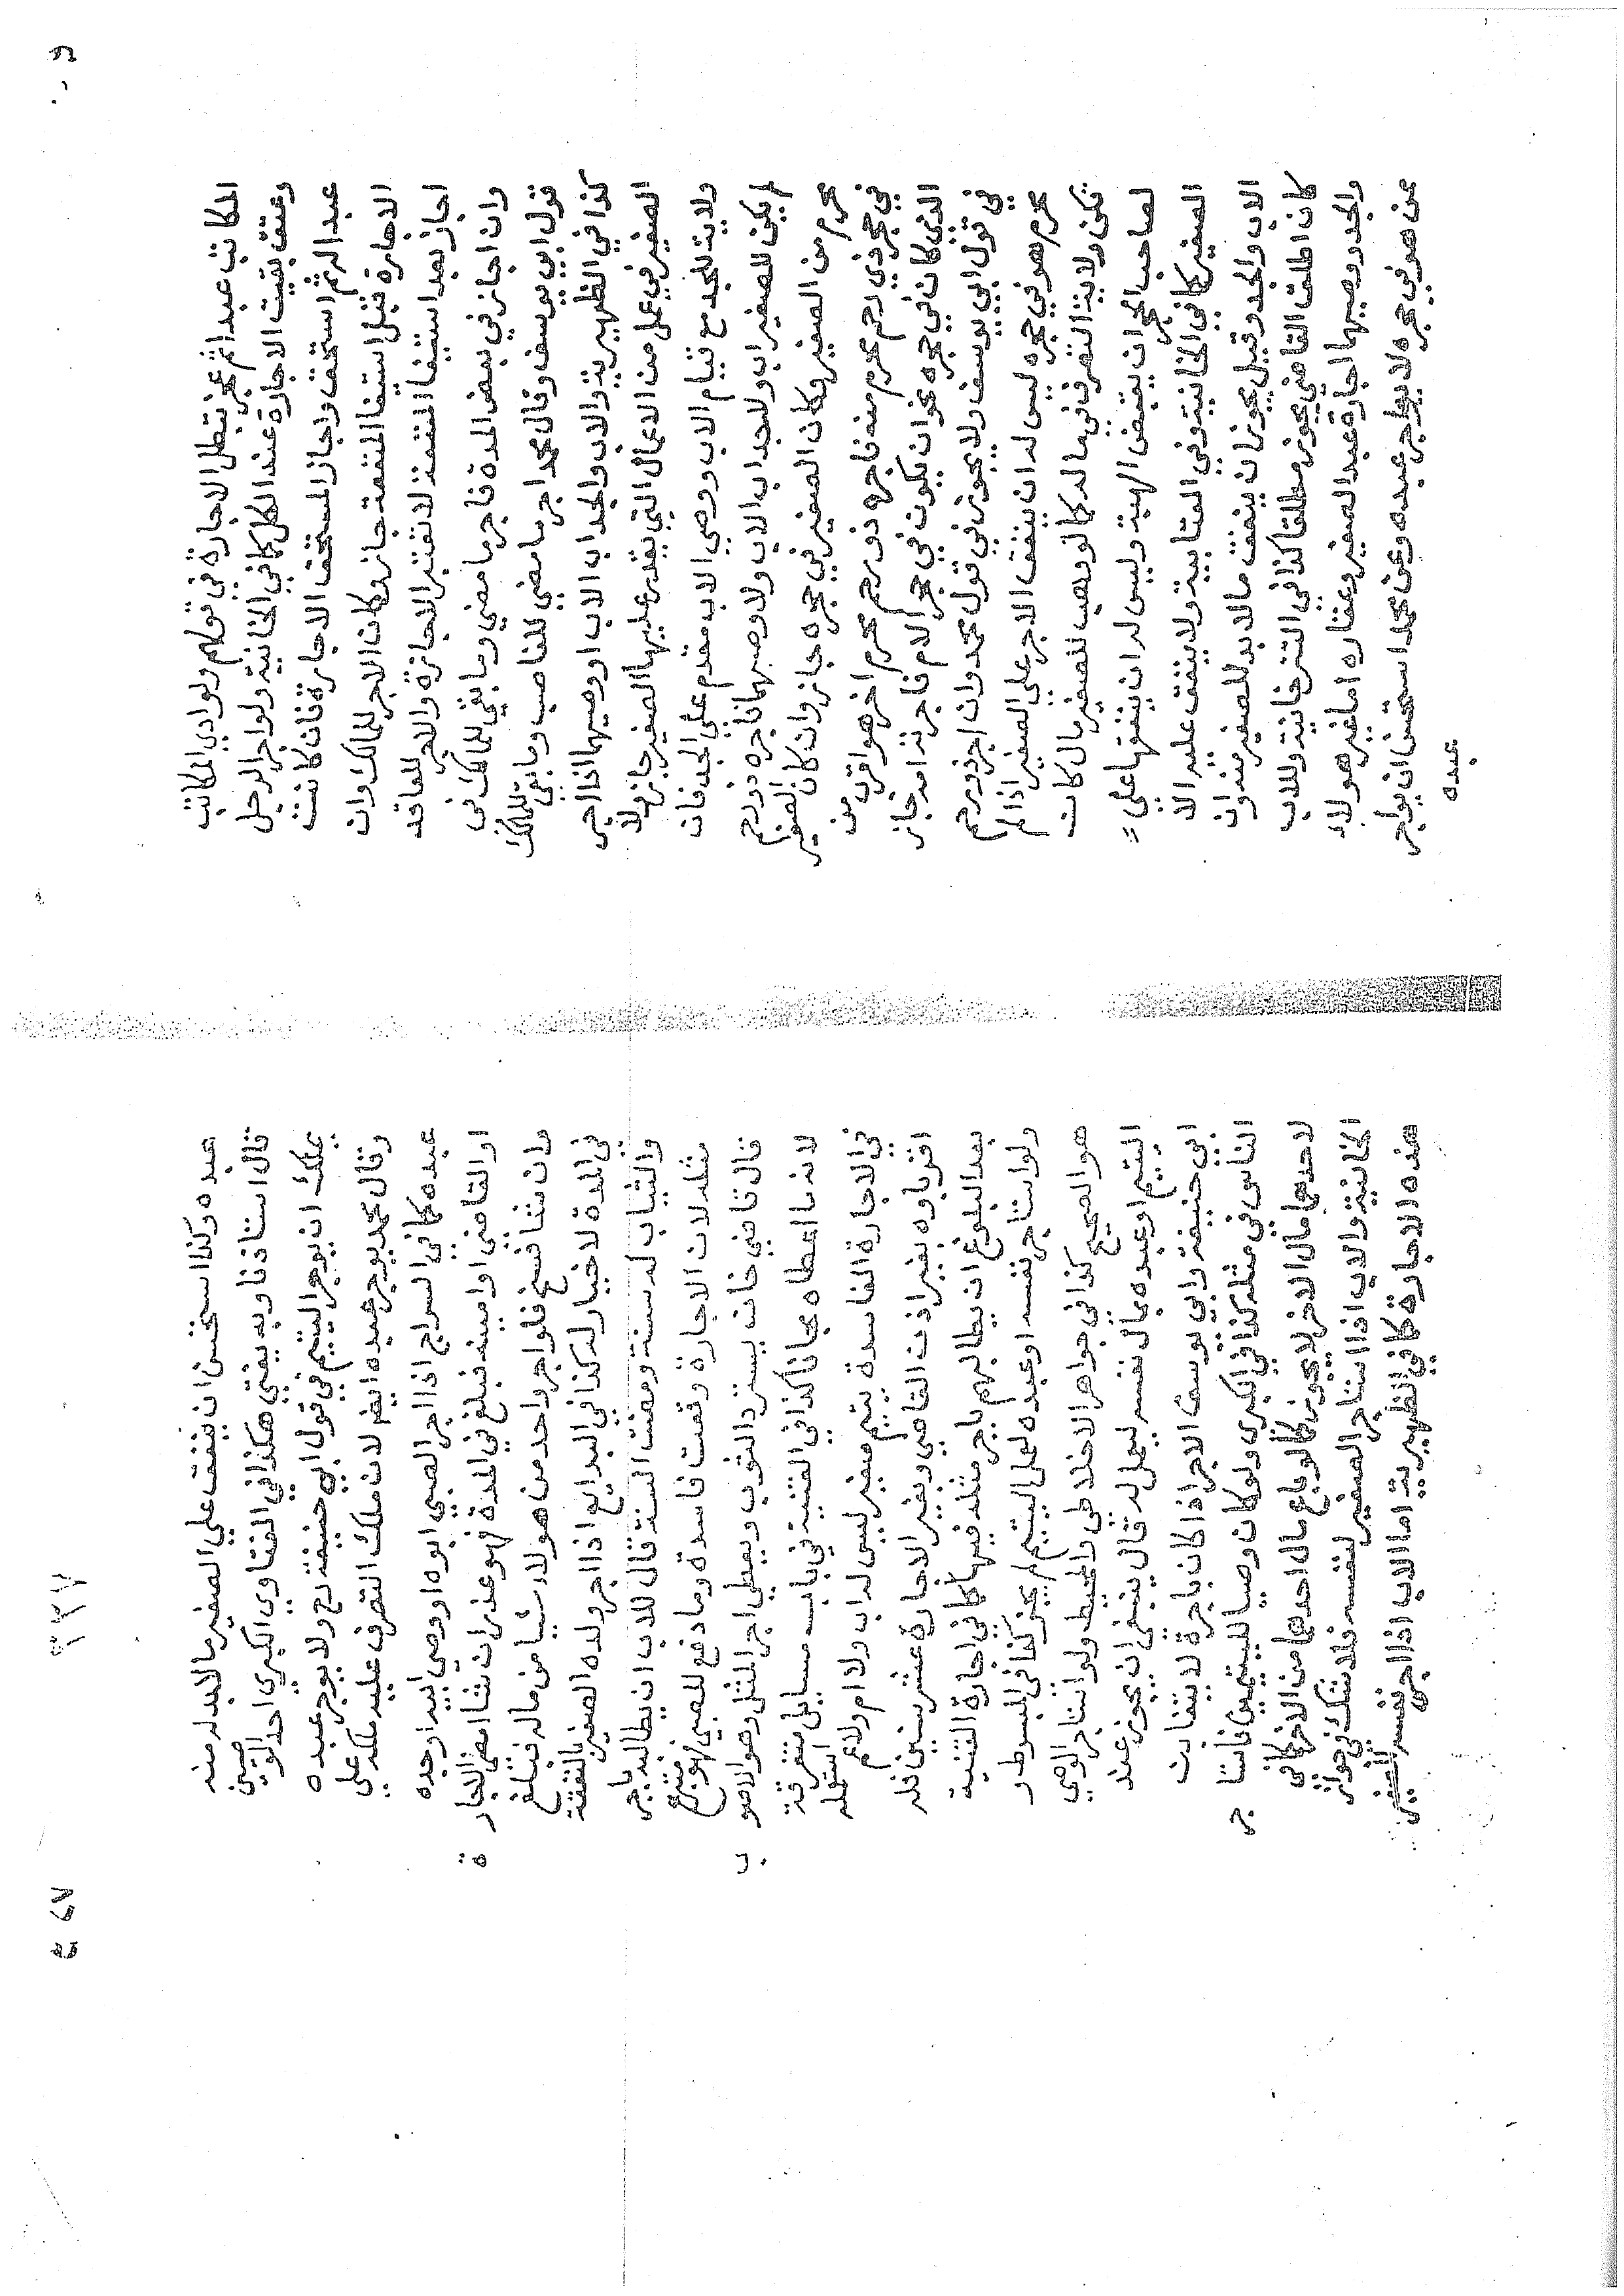 المكاتب عبدا ثم عجز تبطل الاجارة في قولهم ولو ادي المكاتب
وعتق بقيت الاجارة عند الكل كما في الخانية ولو اجر الرجل
عبدا له ثم استحق واجاز المستحق الاجارة فان كانت
الاجازة قبل استيفا المنفعة جاز وكان الاجر للمالك وان
اجاز بعد استيفا المنفعة لا تعتبر الاجازة والاجر للعاقد
وان اجاز في بعض المدة فاجر ما مضي وما بقي للمالك في
قول ابي يوسف وقال محمد اجر ما مضي للغاصب وما بقي للمالك
كذا في الظهيرية والاب والجد اب الاب او وصيهما اذا اجر
الصغير في عمل من الاعمال التي يقدر عليها الصغير جاز ولا
ولاية للجد مع قيام الاب ووصي الاب مقدم علي الجد فان
لم يكن للصغير اب ولا جد اب الاب ولا وصيهما فاجره ذو رحم
محرم من الصغير وكان الصغير في حجره جاز وان كان الصغير
في حجر ذي رحم محرم منه فاجره ذو رحم محرم اخر هو اقرب من
الذي كان في حجره نحو ان يكون في حجر الام فاجرته امه جاز
في قول ابي يوسف ولا يجوز في قول محمد وان اجره ذو رحم
محرم هو في حجره ليس له ان ينفق الاجر علي الصغير اذا لم
تكن ولاية التصرف في ماله كما لو وهب للصغير مال كان
لصاحب الحجر ان يقبض الهبة وليس له ان ينفقها علي =
الصغير كما في الخانية وفي العتابية ولا ينفق عليه الا
الاب والجد وقيل يجوز ان ينفق ما لا بد للصغير منه وان
كان اطلق القاضي يجوز مطلقا كذا في التترخانية وللاب
والجد ووصيهما اجارة عبد الصغير وعقاره اما غير هولاء
عن هو في حجره لا يواجر عبده وعن محمد استحسن ان يواجر
عبده
عبده وكذا استحسن ان ينفق علي الصغير ما لا بد له منه
قال استاذنا وبه يفتي هكذا في الفتاوي الكبري احد الوصيين
يملك ان يوجر اليتيم في قول ابي حنيفة رح ولا يوجر عبده
وقال محمد يوجر عبده ايضا لان ملك التصرف عليه ملكه علي
عبده كما في السراج اذا اجر الصبي ابوه او وصي ابيه او جده
او القاضي او امينه فبلغ في المدة فهو عذر ان شا امضي الاجارة
وان شا فسخ فلو اجر واحد من هولاء شيا من ماله فبلغ
في المدة لا خيار له كذا في البدايع اذا اجر ولده الصغير بالنفقة
والثياب له سنة ومضت السنة قال للاب ان يطالبه باجر
مثله لان الاجارة وقعت فاسدة وما دفع للصبي فهو متبرع
قال قاضي خان يسترد الثوب ويعطي اجر المثل وهو الاصوب
لانه ما اعطاه مجانا كذا في القنية في باب مسايل متفرقة
في الاجارة الفاسدة يتيم صغير ليس له اب ولا ام ولا عم استعمله
اقرباوه بغير اذن القاضي وبغير الاجارة عشر سنين فله
بعد البلوغ ان يطالبهم باجر مثله فيها كما في اجارة القنية
ولو استاجر نفسه او عبده لعمل اليتيم لم يجز كما في المبسوط
هو الصحيح كذا في جواهر الاخلاطي والمحيط ولو استاجر الوصي
اليتيم او عبده بمال نفسه ليعمل له قال ينبغي ان يجوز عند
ابي حنيفة وابي يوسف الاجر اذا كان باجرة لا يتغابن
الناس في مثله كذا في الكبري ولو كان وصيا ليتيمين فاستاجر
لاحدهما مال الاخر لا يجوز كما لو باع مال احدهما من الاخر كما في
الخانية والاب اذا استاجر الصغير لنفسه فلا شك في جواز
هذه الاجارة كما في الظهيرية اما الاب اذا اجر نفسه للصغير
٢٣٧